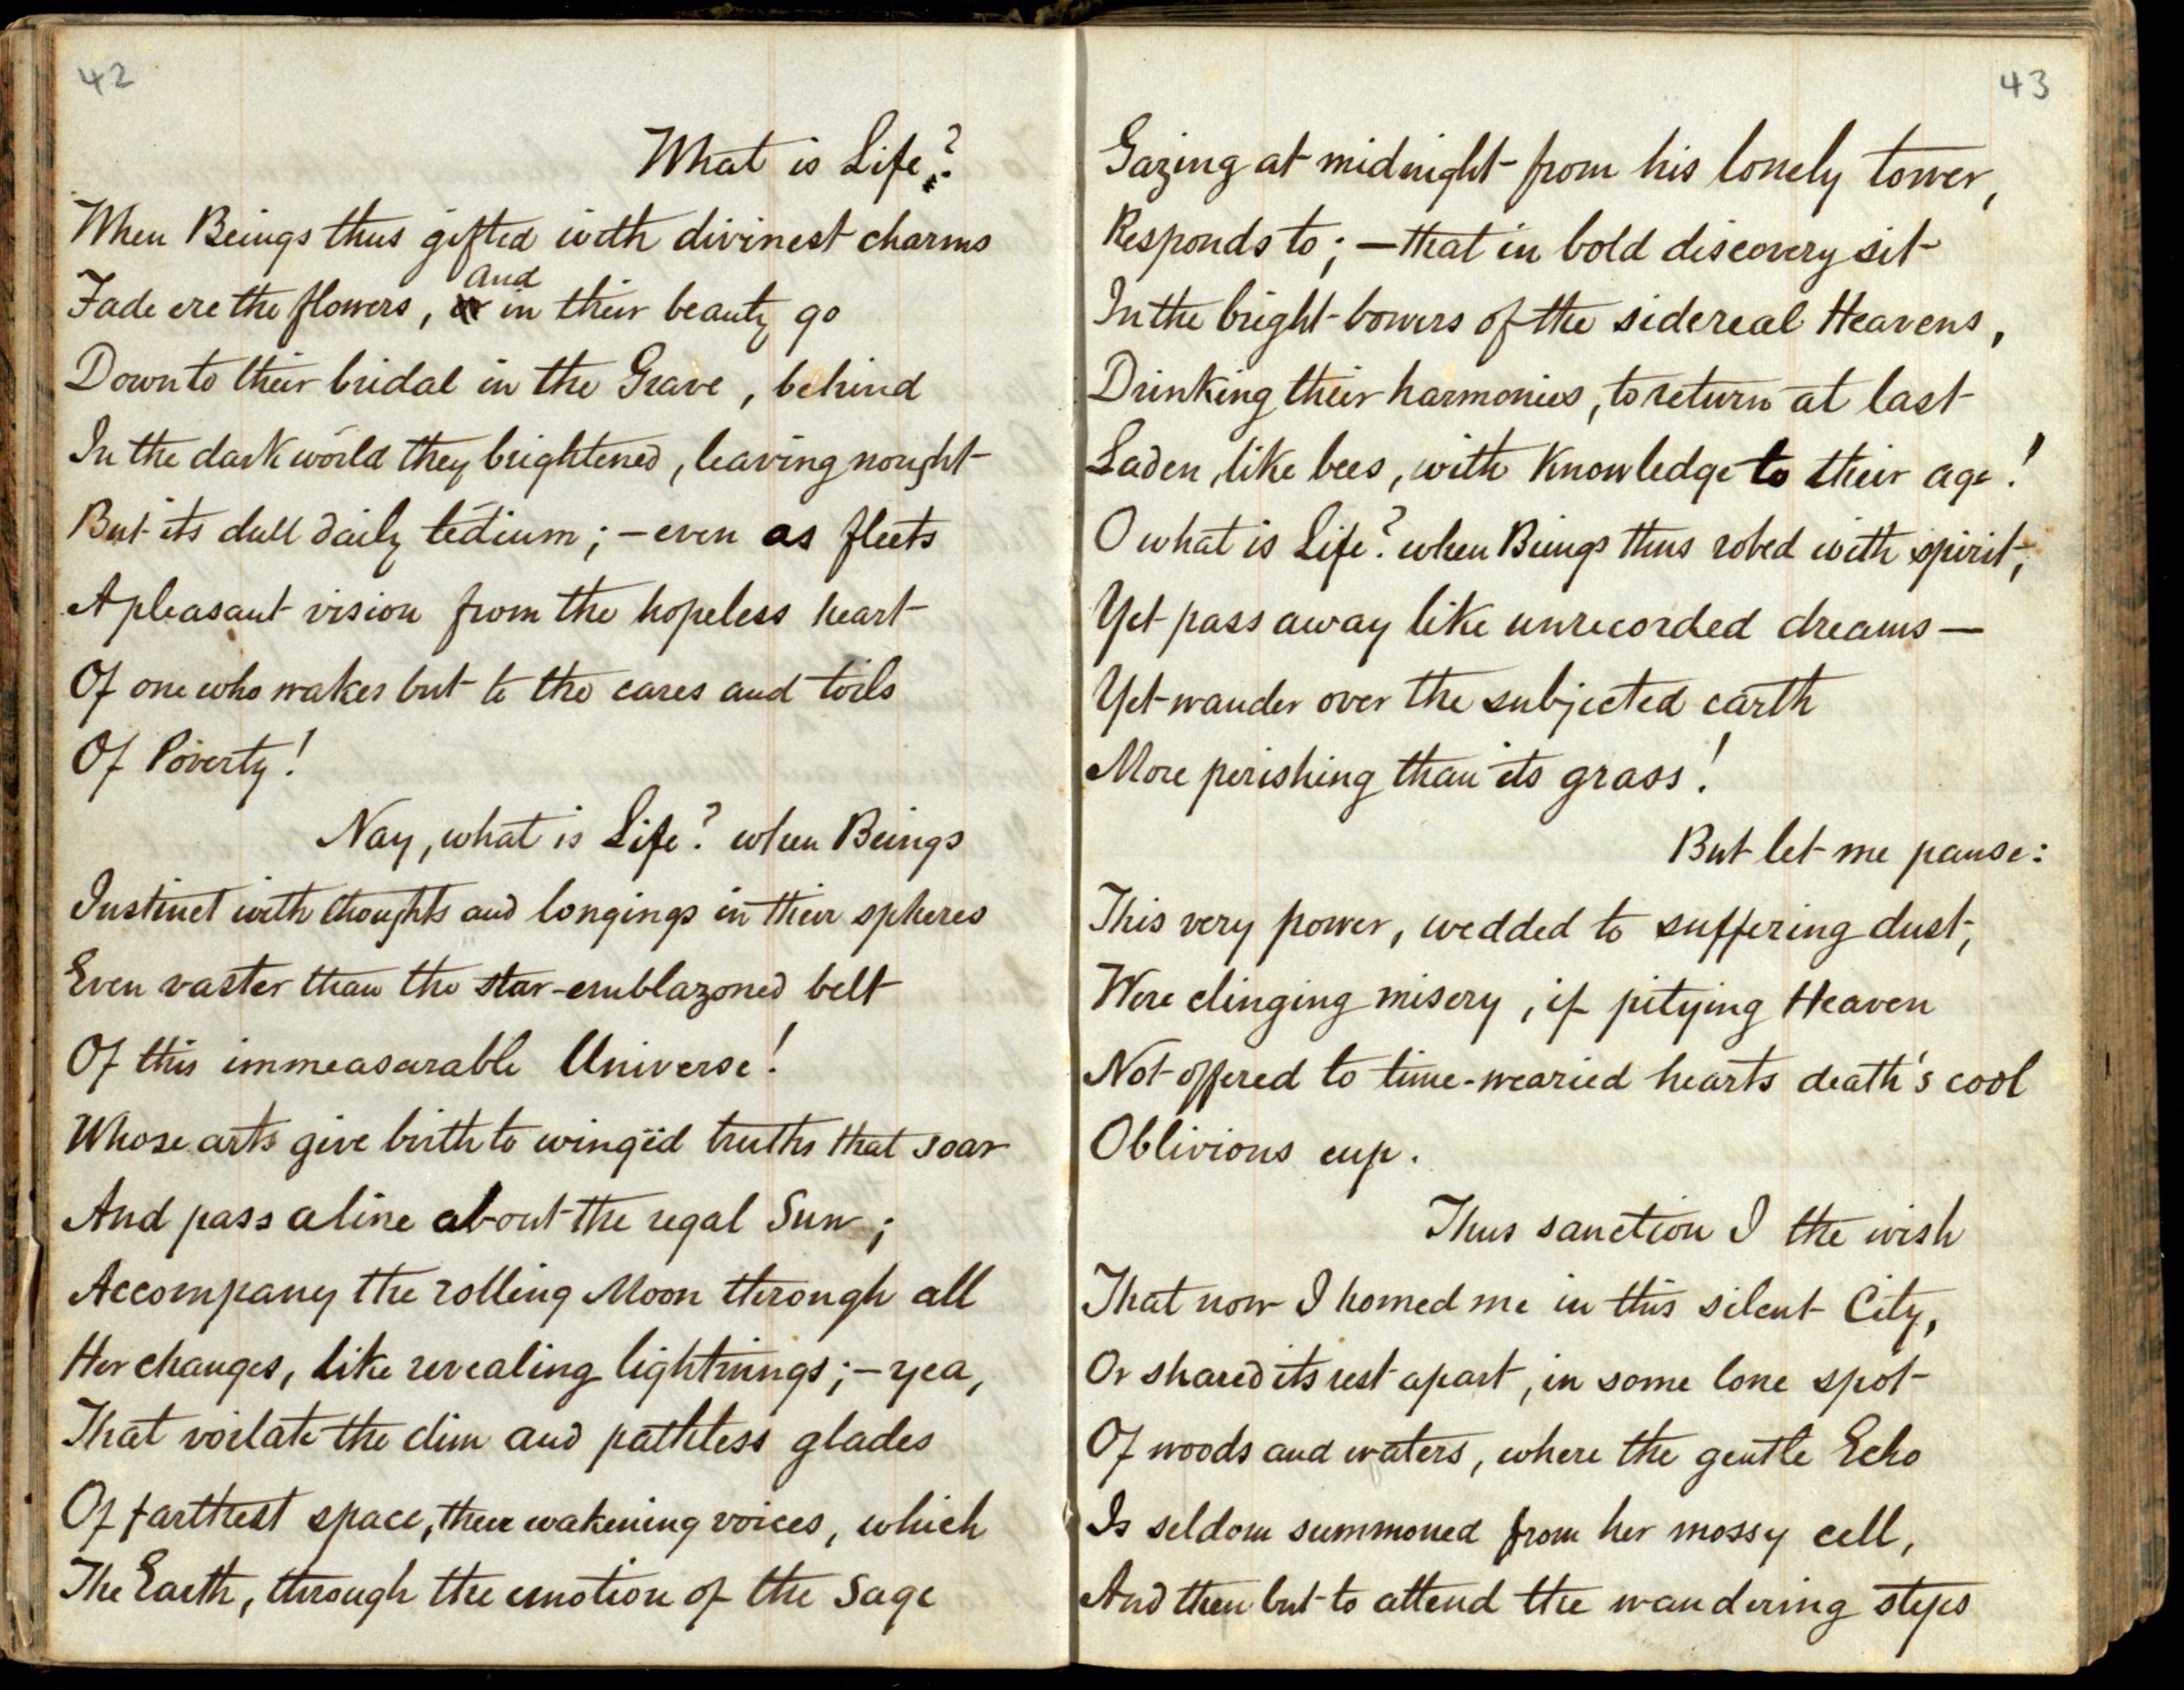 42
What is Life?
When Beings thus gifted with divinest charms
Fade ere the flowers, and in their beauty go
Down to their bridal in the Grave, behind
In the dark world they brightened, leaving nought
But its dull daily tedium; — even as fleets
A pleasant vision from the hopeless heart
Of one who wakes but to the cares and toils
Of Poverty!
Nay, what is Life? when Beings
Instinct with thoughts and longings in their spheres
Even vaster than the star-emblazoned belt
Of this immeasurable Universe!
Whose arts give birth to wingëd truths that soar
And pass a line about the regal Sun;
Accompany the rolling Moon through all
Her changes, like revealing lightnings; — yea,
That voilate the dim and pathless glades
Of farthest space, their wakening voices, which
The Earth, through the emotion of the Sage
43
Gazing at midnight from his lonely tower,
Responds to; — that in bold discovery sit
In the bright bowers of the sidereal Heavens,
Drinking their harmonies, to return at last
Laden, like bees, with knowledge to their age!
O what is Life? when Beings thus robed with spirit,
Yet pass away like unrecorded dreams —
Yet wander over the subjected earth
More perishing than its grass!
But let me pause:
This very power, wedded to suffering dust,
Were clinging misery, if pitying Heaven
Not offered to time-wearied hearts death's cool
Oblivious cup.
Thus sanction I the wish
That now I homed me in this silent City,
Or shared its rest apart, in some lone spot
Of woods and waters, where the gentle Echo
Is seldom summoned from her mossy cell,
And then but to attend the wandering steps